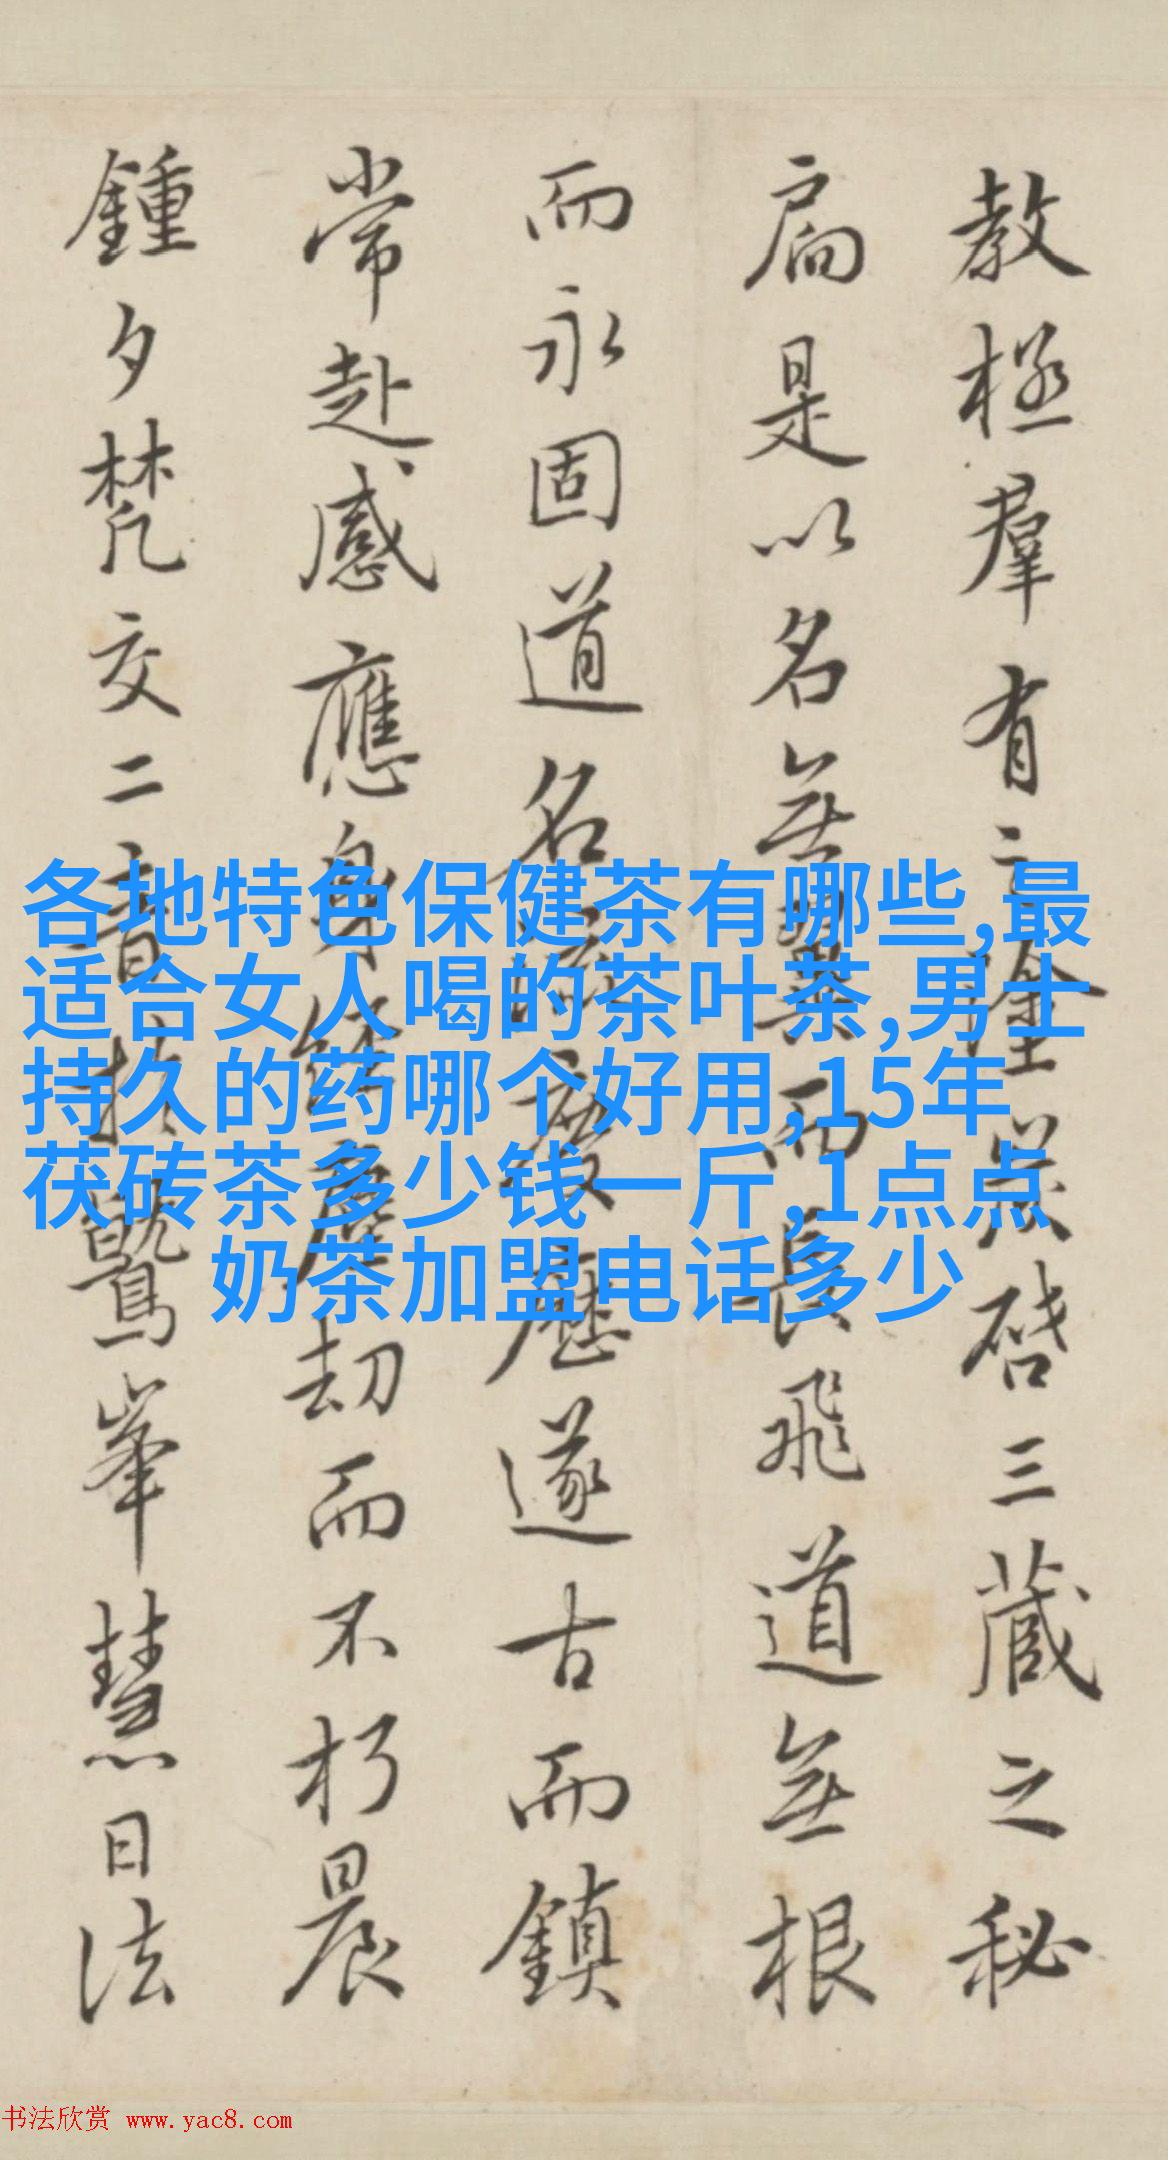 教極羣有之塗炭啓三藏之秘
扃是以名無翼而長飛道無根
而永固道名流慶歷遂古而鎮
常赴感應身經塵劫而不朽晨
鍾夕梵交二音於鷲峯慧日法
各地特色保健茶有哪些,最
适合女人喝的茶叶茶,男士
持久的药哪个好用,15年
茯砖茶多少钱一斤,1点点
奶茶加盟电话多少
书法欣赏 www.yac8.com